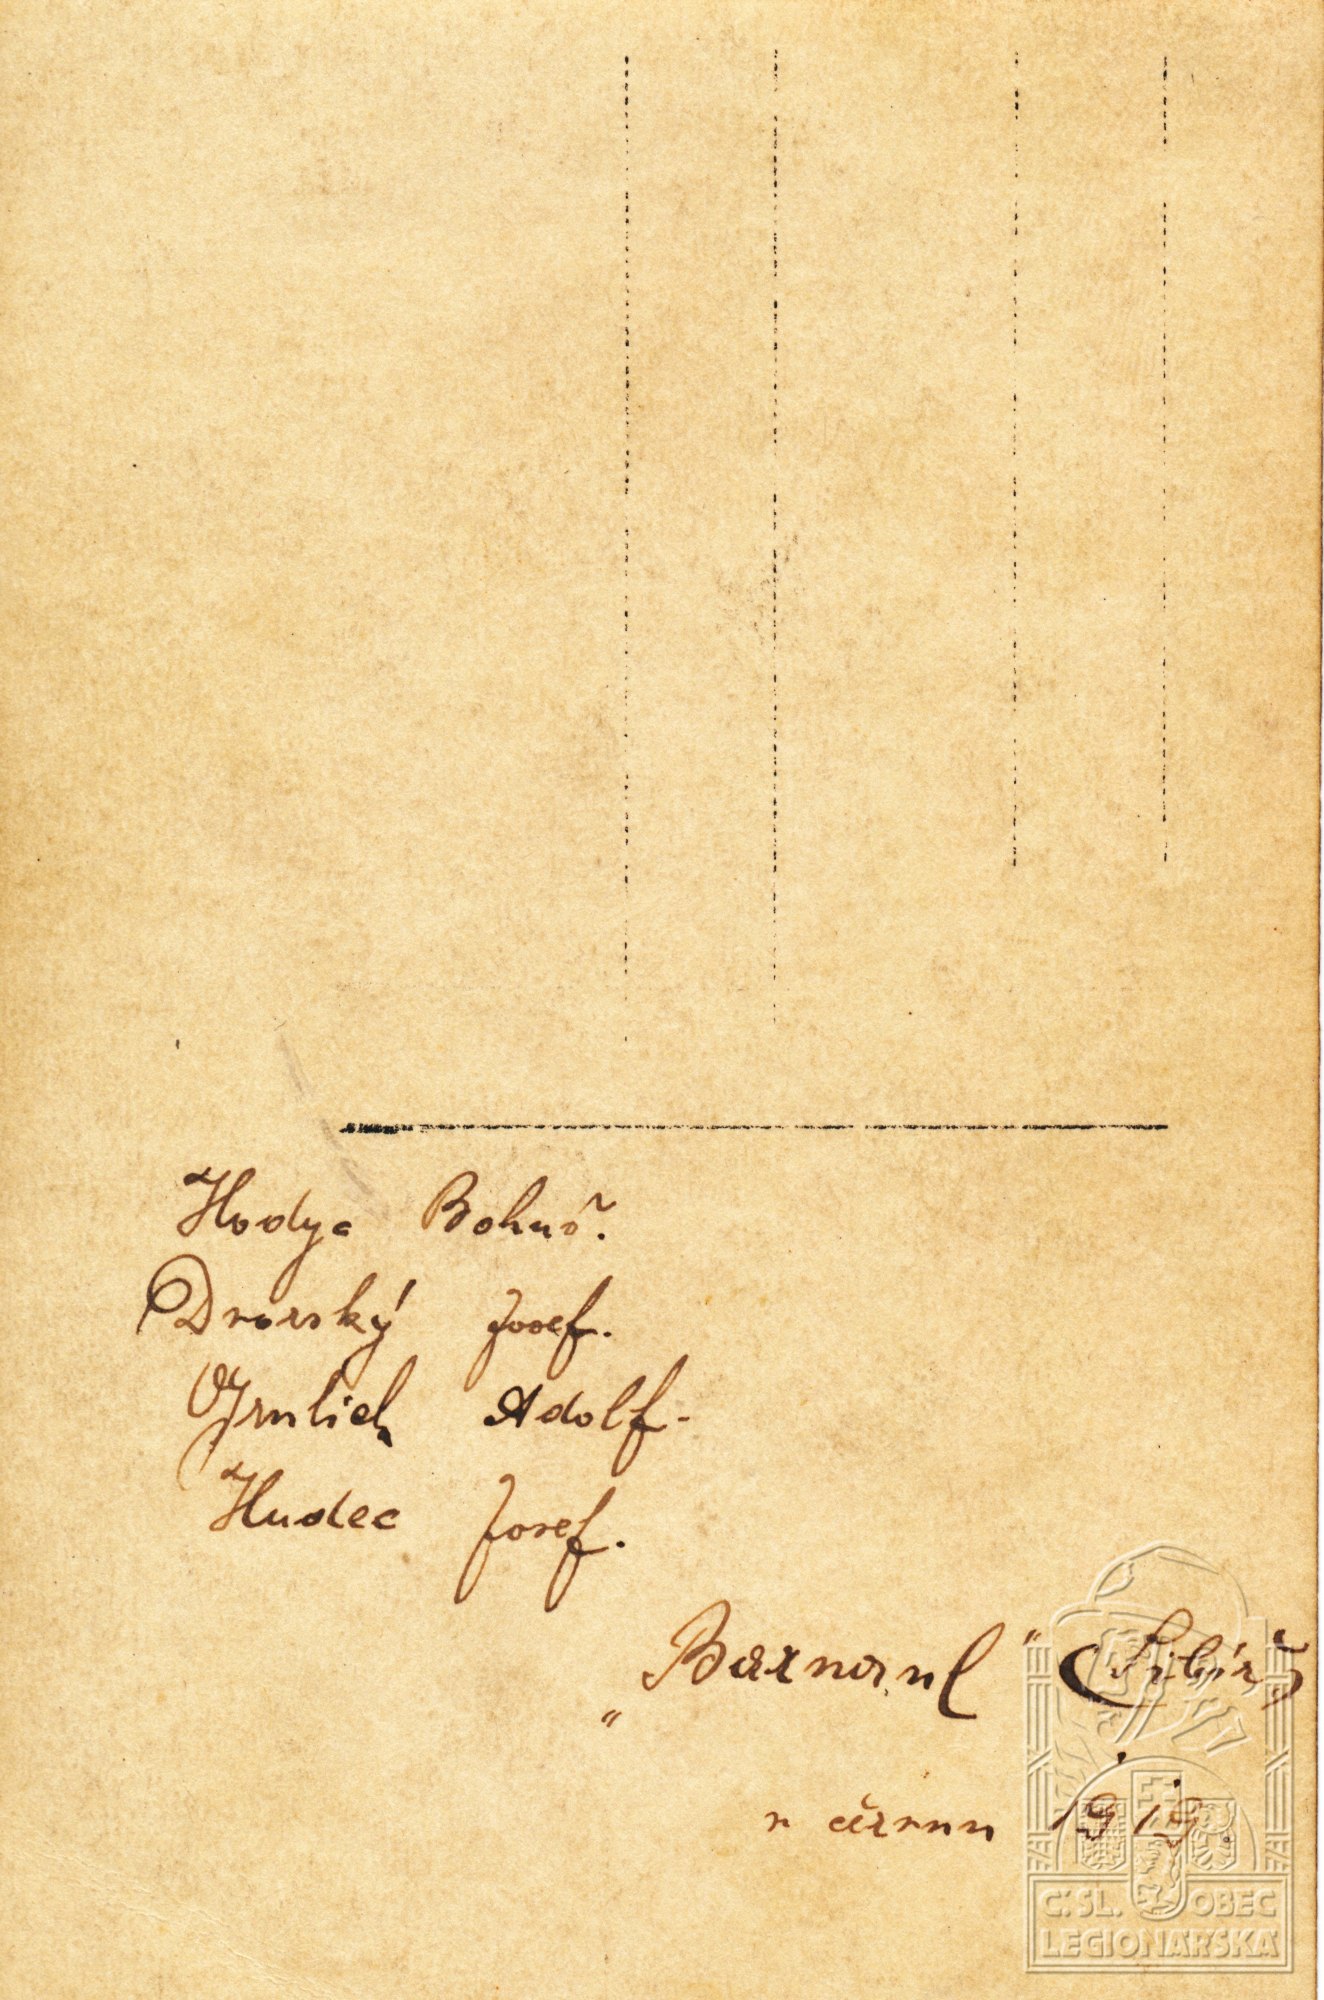 Hodyc Bohuš.
Dvorský Josef.
Adolf.
Hudec Josef.
„Barnaul“ Sibiř
v červnu 1919.
Č.SL. OBEC
LEGIONÁŘSKÁ